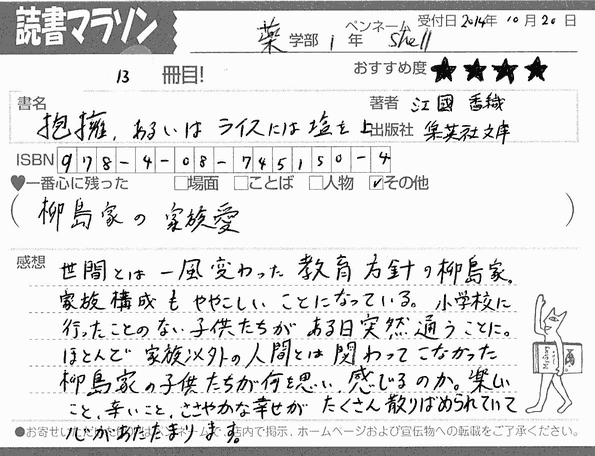 読書マラソン
薬 学部 1 年 ペンネーム shell 受付日 2014年 10月 20日
13 冊目! おすすめ度 ★★★★
書名 著者 江國香織
抱擁、あるいはライスには塩を 上 出版社 集英社文庫
ISBN 978-4-08-745150-4
♥一番心に残った □場面 □ことば □人物 ☑その他
( 柳島家の家族愛 )
感想 世間とは一風変わった教育方針の柳島家。
家族構成もややこしいことになっている。小学校に
行ったことのない子供たちがある日突然通うことに。
ほとんど家族以外の人間とは関わってこなかった
柳島家の子供たちが何を思い、感じるのか。楽しい
こと、辛いこと、ささやかな幸せがたくさん散りばめられていて
心があたたまります。
●お寄せいただいた はペンネームで、店内で掲示、ホームページおよび宣伝物への転載をご了承ください。